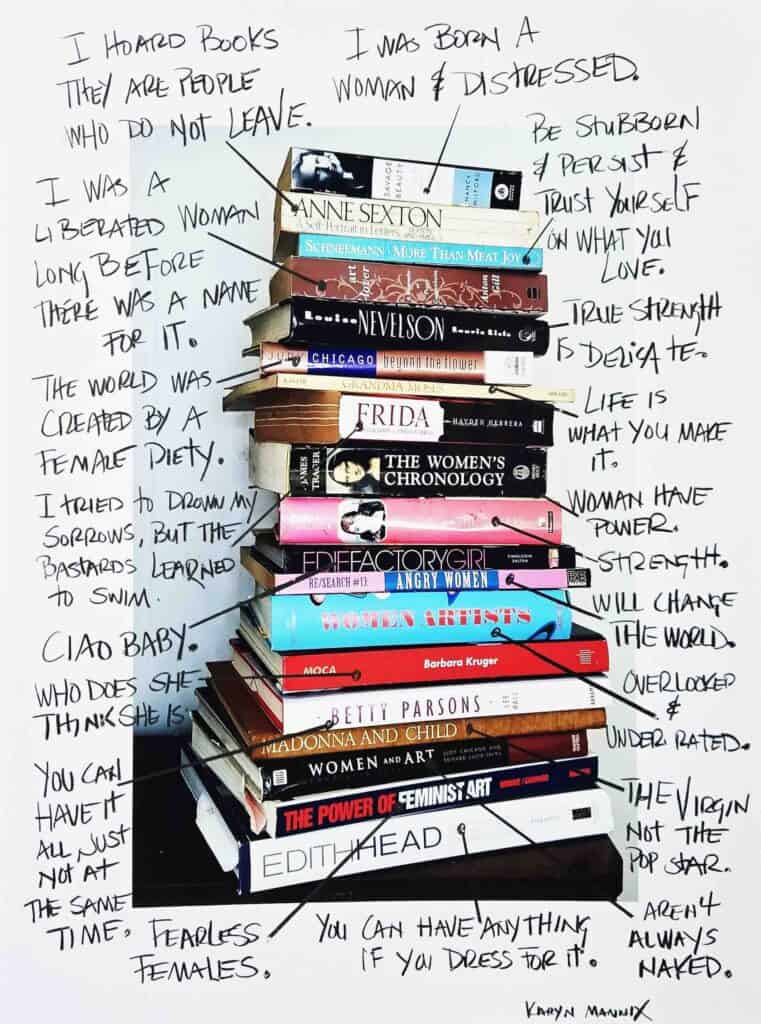 I HOARD BOOKS
THEY ARE PEOPLE
WHO DO NOT LEAVE.
I WAS BORN A
WOMAN & DISTRESSED.
BE STUBBORN
& PERSIST &
TRUST YOURSELF
ON WHAT YOU
LOVE.
I WAS A
LIBERATED WOMAN
LONG BEFORE
THERE WAS A NAME
FOR IT.
TRUE STRENGTH
IS DELICATE.
THE WORLD WAS
CREATED BY A
FEMALE DIETY.
LIFE IS
WHAT YOU MAKE
IT.
I TRIED TO DROWN MY
SORROWS, BUT THE
BASTARDS LEARNED
TO SWIM.
WOMAN HAVE
POWER.
STRENGTH.
CIAO BABY.
WILL CHANGE
THE WORLD.
WHO DOES SHE
THINK SHE IS.
OVERLOOKED
&
UNDER RATED.
YOU CAN
HAVE IT
ALL JUST
NOT AT
THE SAME
TIME.
THE VIRGIN
NOT THE
POP STAR.
FEARLESS
FEMALES.
YOU CAN HAVE ANYTHING
IF YOU DRESS FOR IT.
AREN'T
ALWAYS
NAKED.
KARYN MANNIX
SAVAGE
BEAUTY
NANCY
MILFORD
ANNE SEXTON
A Self-Portrait in Letters
SCHNEEMANN · MORE THAN MEAT JOY
art
lover
Anton
Gill
Louise NEVELSON
JUDY CHICAGO beyond the flower
GRANDMA MOSES
FRIDA
HAYDEN HERRERA
JAMES
TRAGER
THE WOMEN'S
CHRONOLOGY
EDIE FACTORY GIRL
RE/SEARCH #13: ANGRY WOMEN
WOMEN ARTISTS
MOCA Barbara Kruger
BETTY PARSONS
LEE
HALL
MADONNA AND CHILD
WOMEN AND ART
JUDY CHICAGO AND
EDWARD LUCIE-SMITH
THE POWER OF FEMINIST ART
EDITH HEAD